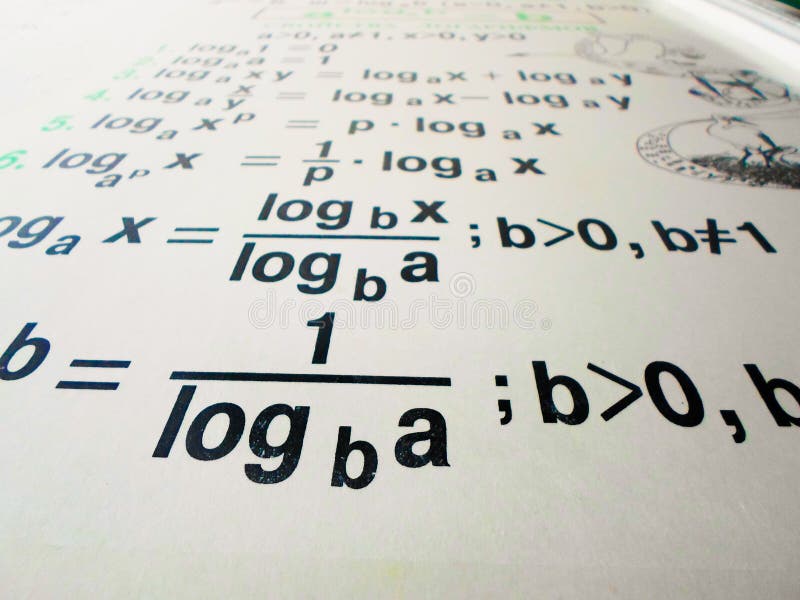 a>0, a≠1, x>0, y>0
1. log_a 1 = 0
2. log_a a = 1
3. log_a xy = log_a x + log_a y
4. log_a x/y = log_a x - log_a y
5. log_a x^p = p · log_a x
6. log_a^p x = 1/p · log_a x
og_a x = log_b x / log_b a ; b>0, b≠1
b = 1 / log_b a ; b>0, b
dreamstime